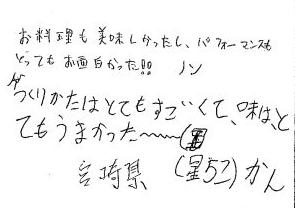 お料理も美味しかったし、パフォーマンスも
とってもお面白かった!! ノン
つくりかたはとてもすごくて、味は、と
てもうまかった〜〜〜(星
宮崎県 (星5こ) かん